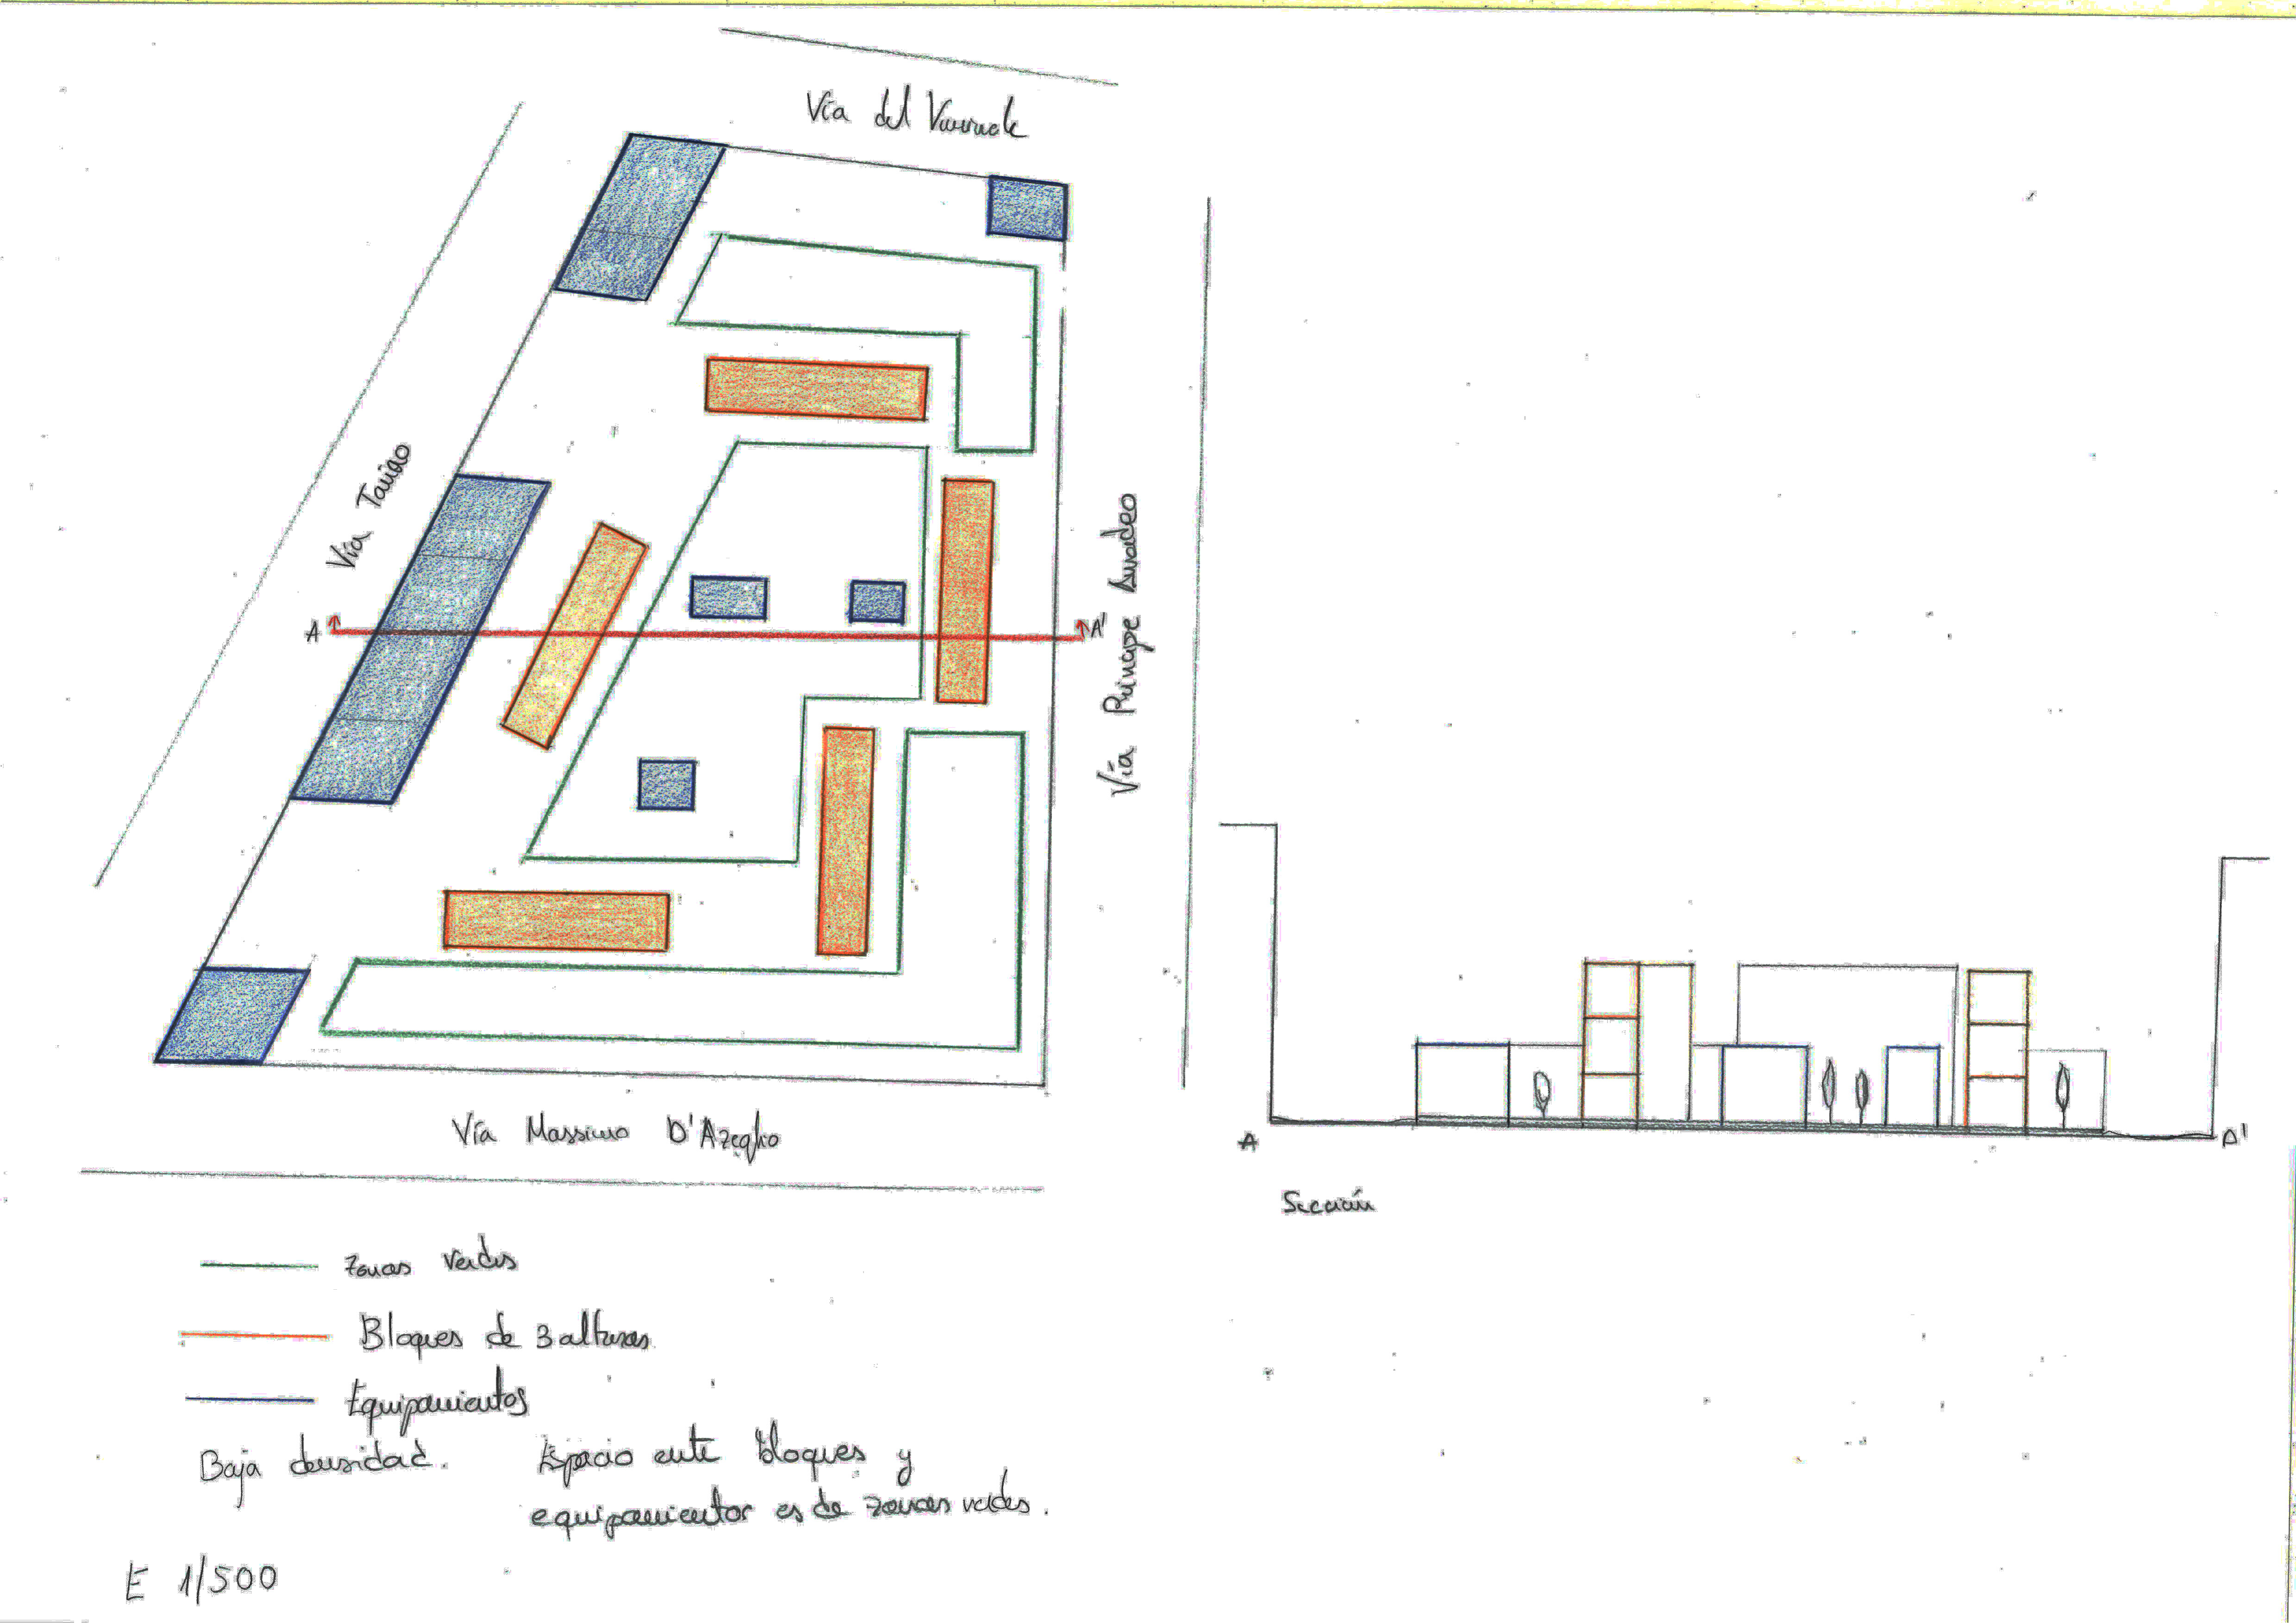 Vía del Viminale
Vía Tanigo
A
A'
Vía Principe Amadeo
Vía Massimo D'Azeglio
A
A'
Sección
Zonas verdes
Bloques de 3 alturas.
Equipamientos
Baja densidad.
Espacio ente bloques y
equipamientos es de zonas verdes.
E 1/500